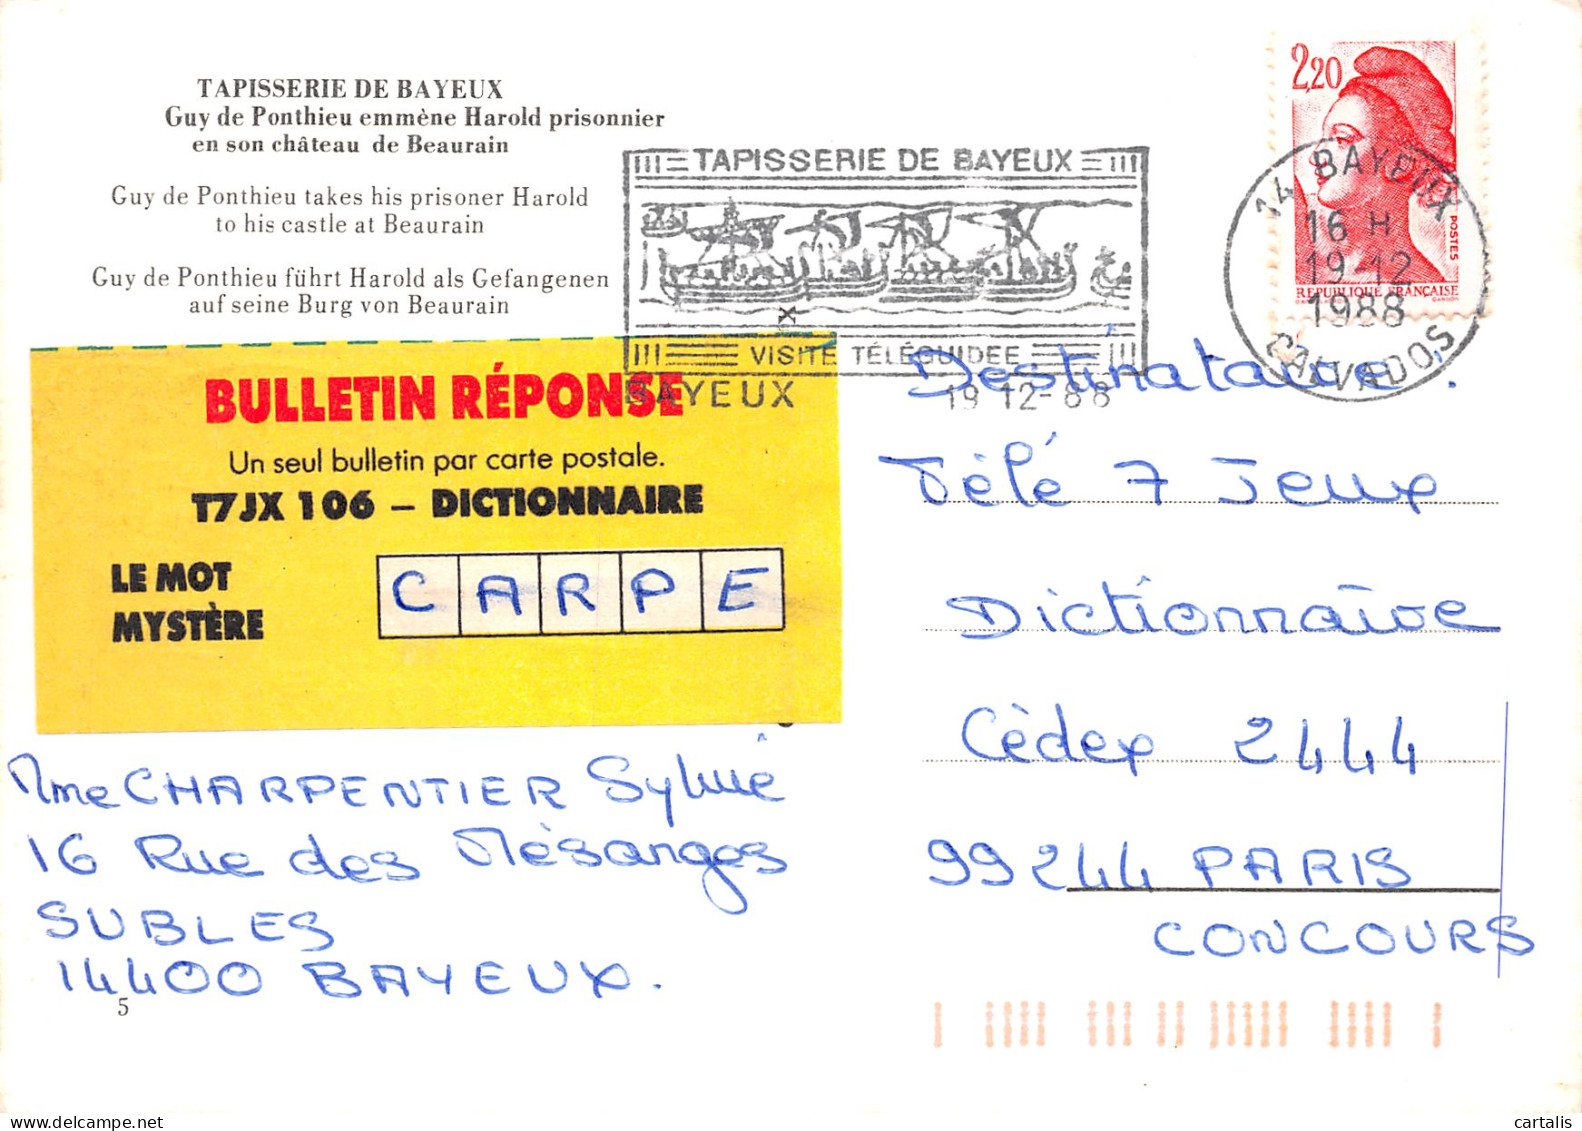 TAPISSERIE DE BAYEUX
Guy de Ponthieu emmène Harold prisonnier
en son château de Beaurain
Guy de Ponthieu takes his prisoner Harold
to his castle at Beaurain
Guy de Ponthieu führt Harold als Gefangenen
auf seine Burg von Beaurain
TAPISSERIE DE BAYEUX
VISITE TÉLÉGUIDEE
BAYEUX 19 12-88
2,20
POSTES
REPUBLIQUE FRANÇAISE
14 BAYEUX
16 H
19-12
1988
CALVADOS
BULLETIN RÉPONSE
Un seul bulletin par carte postale.
T7JX 106 – DICTIONNAIRE
LE MOT
MYSTÈRE
C A R P E
Mme CHARPENTIER Sylvie
16 Rue des Mésanges
SUBLES
14400 BAYEUX.
5
Destinataire :
Télé 7 Jeux
Dictionnaire
Cèdex 2444
99244 PARIS
CONCOURS
cartalis